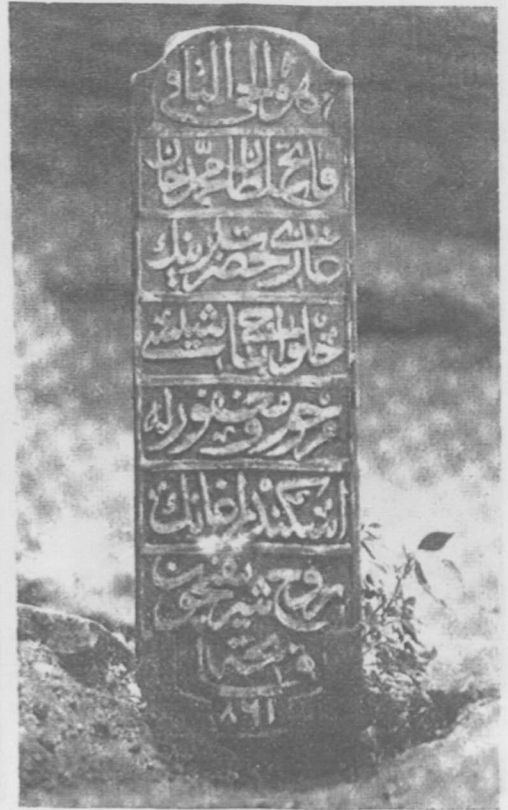 هو الحي الباقي
فاتح سلطان محمد خان
غازي حضرتلرينك
حلواجي باشيلر
مرحوم و مغفور له
اسكندر اغانك
روح شريفيچون
فاتحه
٨٩١